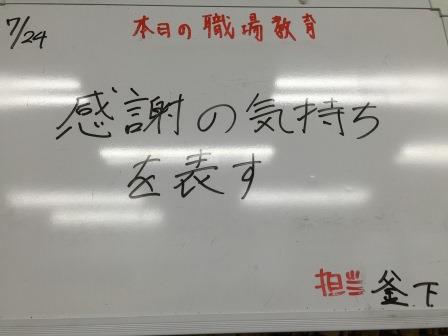 7/24
本日の職場教育
感謝の気持ち
を表す
担当 釜下